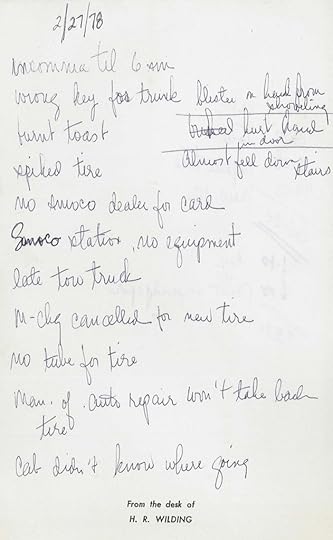 2/27/78
insomnia til 6 am
wrong key for trunk
burnt toast
spiked tire
blister on hand from
shoveling
hurt hand
in door
almost fell down
stairs
no Amoco dealer for card
Sunoco station, no equipment
late tow truck
M-chg cancelled for new tire
no tube for tire
Man. of auto repair won't take back
tire
Cab didn't know where going
From the desk of
H. R. WILDING